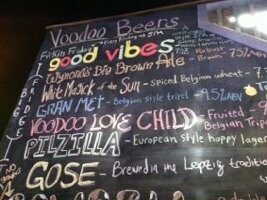 Voodoo Beers
Firkin Friday
good vibes
Wynona's Big Brown Ale - Brown - 7.5%
White Magick of the Sun - spiced Belgian wheat - 7.
GRAN MET - Belgian style tripel - 9.5% ABV
VOODOO LOVE CHILD - Fruited Belgian Trip
PILZILLA - European style hoppy lager
GOSE - Brewed in the Leipzig tradition